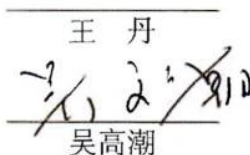 王 丹
吴高潮